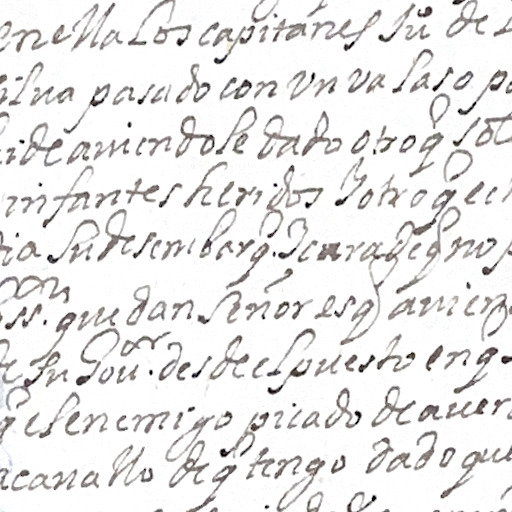 en ella Los capitanes Ju.º de L
silua pasado con Vn Valaso p
i de auiendole dado otro q̃ sol
infantes heridos Y otro q̃ ec
dia Su desembarq̃. Y
SS.ᵒⁿ quedan Señores q̃ auien
de Su Gou.ᵒʳ desde el puesto en q̃
q̃ el enemigo picado de auer
acanallo de q̃ tengo dado que